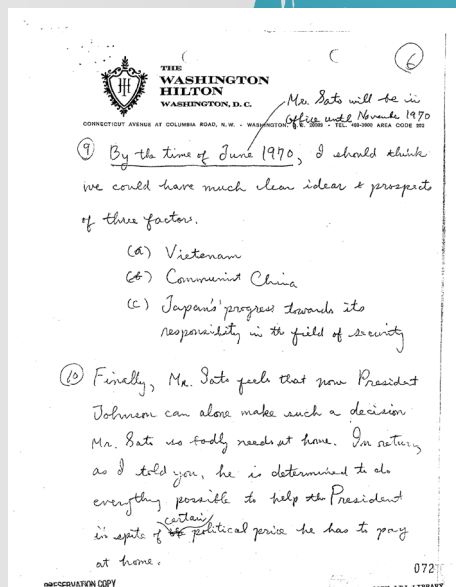 6
THE
WASHINGTON
HILTON
WASHINGTON, D.C.
Mr. Sato will be in
office until November 1970
CONNECTICUT AVENUE AT COLUMBIA ROAD, N.W. - WASHINGTON, D.C. 20009 - TEL. 483-3000 AREA CODE 202
9 By the time of June 1970, I should think
we could have much clear idear & prospects
of three factors.
(a) Vietenam
(b) Communist China
(c) Japan's progress towards its
responsibility in the field of security
10 Finally, Mr. Sato feels that now President
Johnson can alone make such a decision
Mr. Sato so badly needs at home. In return,
as I told you, he is determined to do
everything possible to help the President
certain
in spite of political price he has to pay
at home.
072
PRESERVATION COPY
LIBRARY